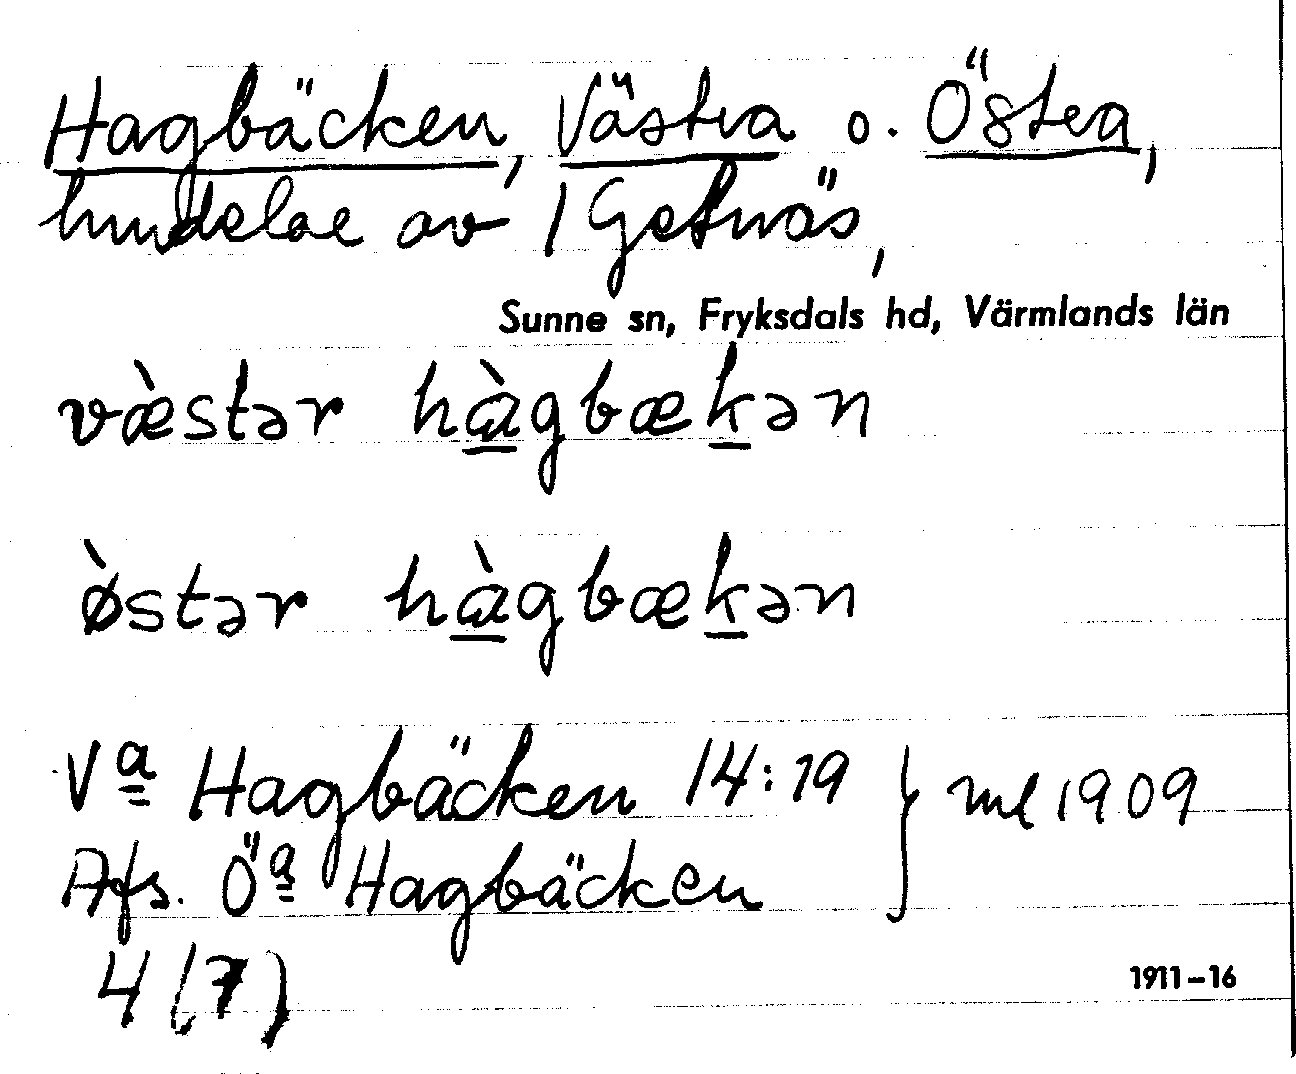 Hagbäcken, Västra o. Östra,
hmdelar av 1 Getnäs,
Sunne sn, Fryksdals hd, Värmlands län
væ̀stər hàgbækən
ø̀stər hàgbækən
Va Hagbäcken 14:19 } ml 1909
Afs. Öa Hagbäcken
4 (7)
1911–16